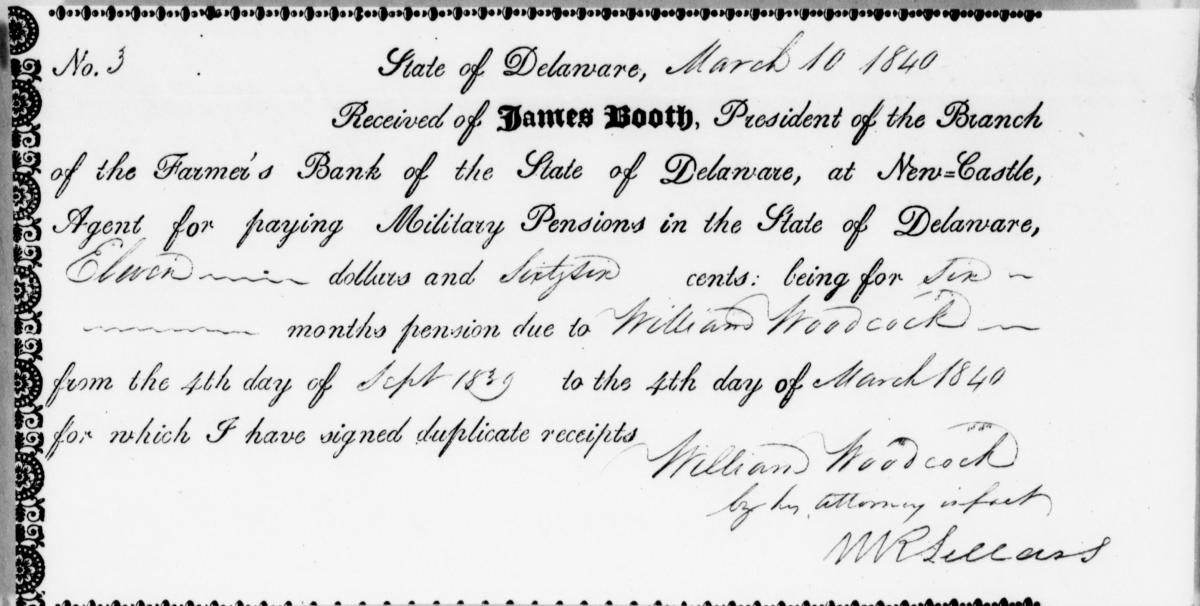 No. 3 State of Delaware, March 10 1840
Received of James Booth, President of the Branch
of the Farmer's Bank of the State of Delaware, at New=Castle,
Agent for paying Military Pensions in the State of Delaware,
Eleven dollars and Sixty six cents: being for Six
months pension due to William Woodcock
from the 4th day of Sept 1839 to the 4th day of March 1840
for which I have signed duplicate receipts
William Woodcock
by his attorney in fact